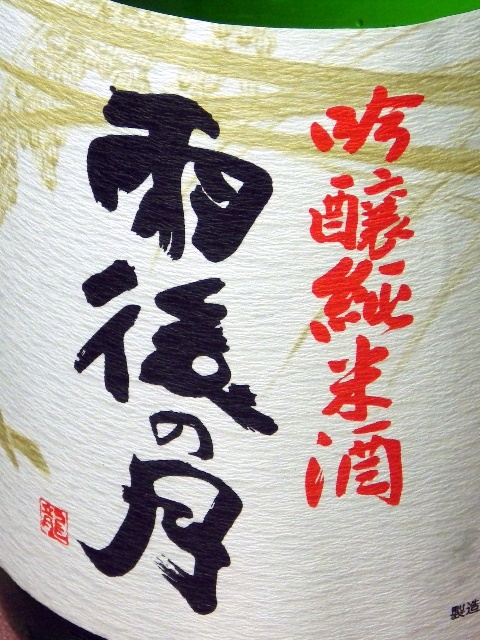 吟醸純米酒
雨後の月
製造